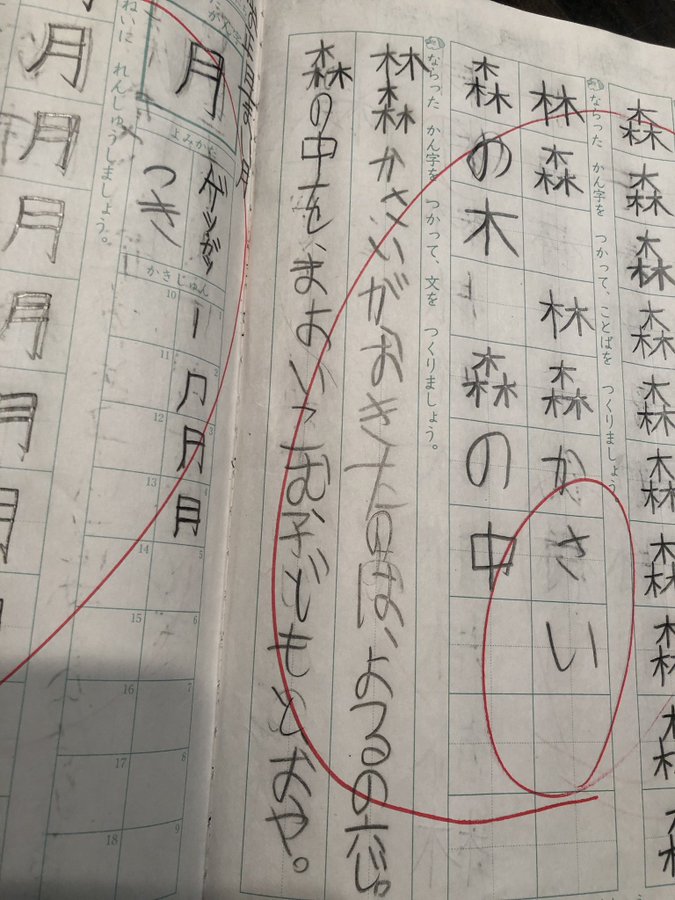 森森森森森森森森森森
ならった かん字を つかって、ことばを つくりましょう
林森 林森かさい
森の木 森の中
ならった かん字を つかって、文を つくりましょう。
林森かさいがおきたのは、よるの六じ。
森の中を、まよいこむ子どもとおや。
月
よみかた
つき
かきじゅん
1 2 3 4 5 6 7 8 9
10 11 12 13 14 15 16 17 18
ねいに れんしゅうしましょう。
月月月月月月